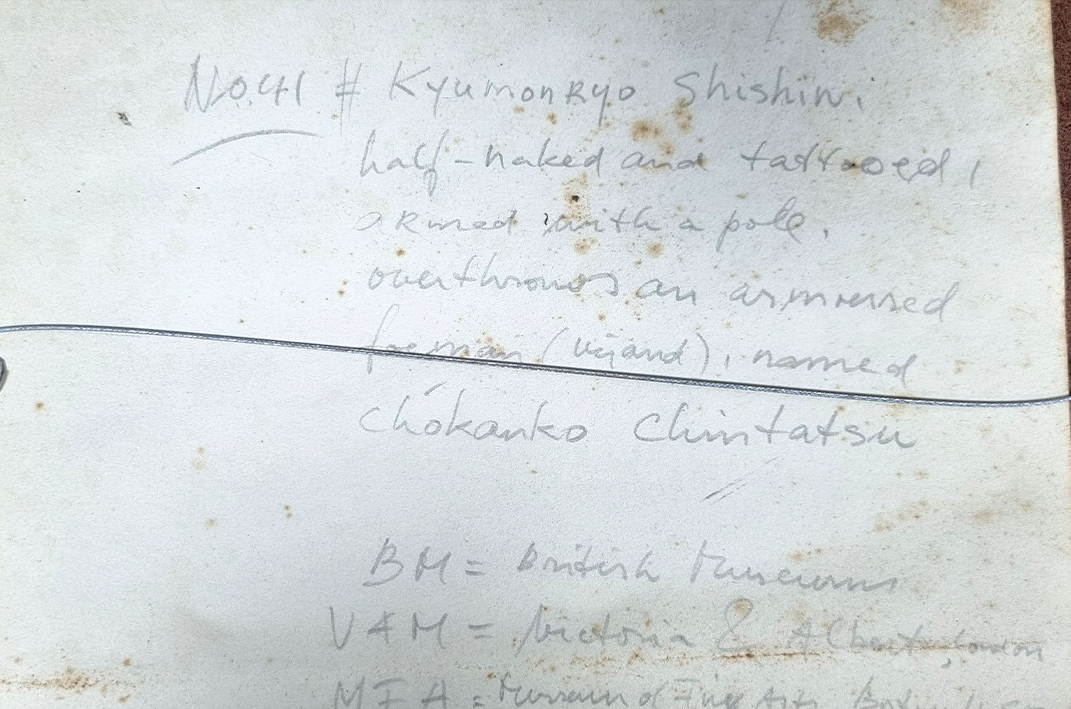 No.41 # Kyumonryo Shishin.
half-naked and tattooed,
armed with a pole,
overthrows an armoured
foeman (vijand), named
Chókanko Chintatsu
BM = British Museum
V & M = Victoria & Albert, London
MFA = Museum of Fine Arts,